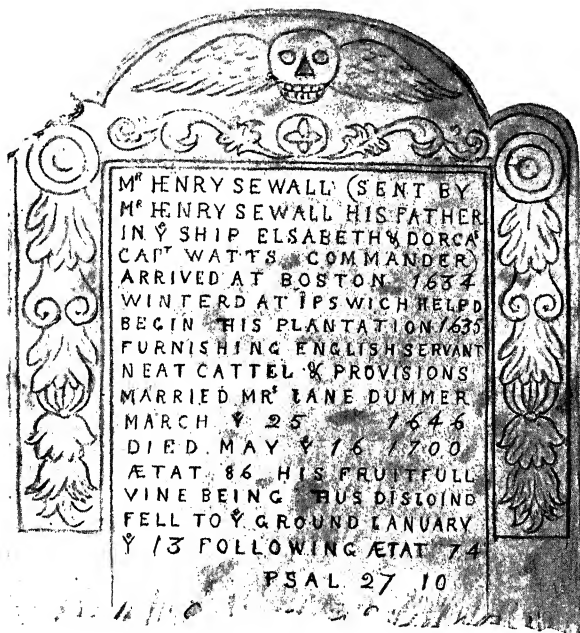 Mr HENRY SEWALL (SENT BY
Mr HENRY SEWALL HIS FATHER
IN Ye SHIP ELSABETH & DORCAS
CAPT WATTS COMMANDER)
ARRIVED AT BOSTON 1634
WINTERD AT IPSWICH HELPD
BEGIN THIS PLANTATION 1635
FURNISHING ENGLISH SERVANT
NEAT CATTEL & PROVISIONS
MARRIED MRS IANE DUMMER
MARCH Ye 25 1646
DIED MAY Ye 16 1700
ÆTAT 86 HIS FRUITFULL
VINE BEING THUS DISIOIND
FELL TO Ye GROUND IANUARY
Ye 13 FOLLOWING ÆTAT 74
PSAL 27 10